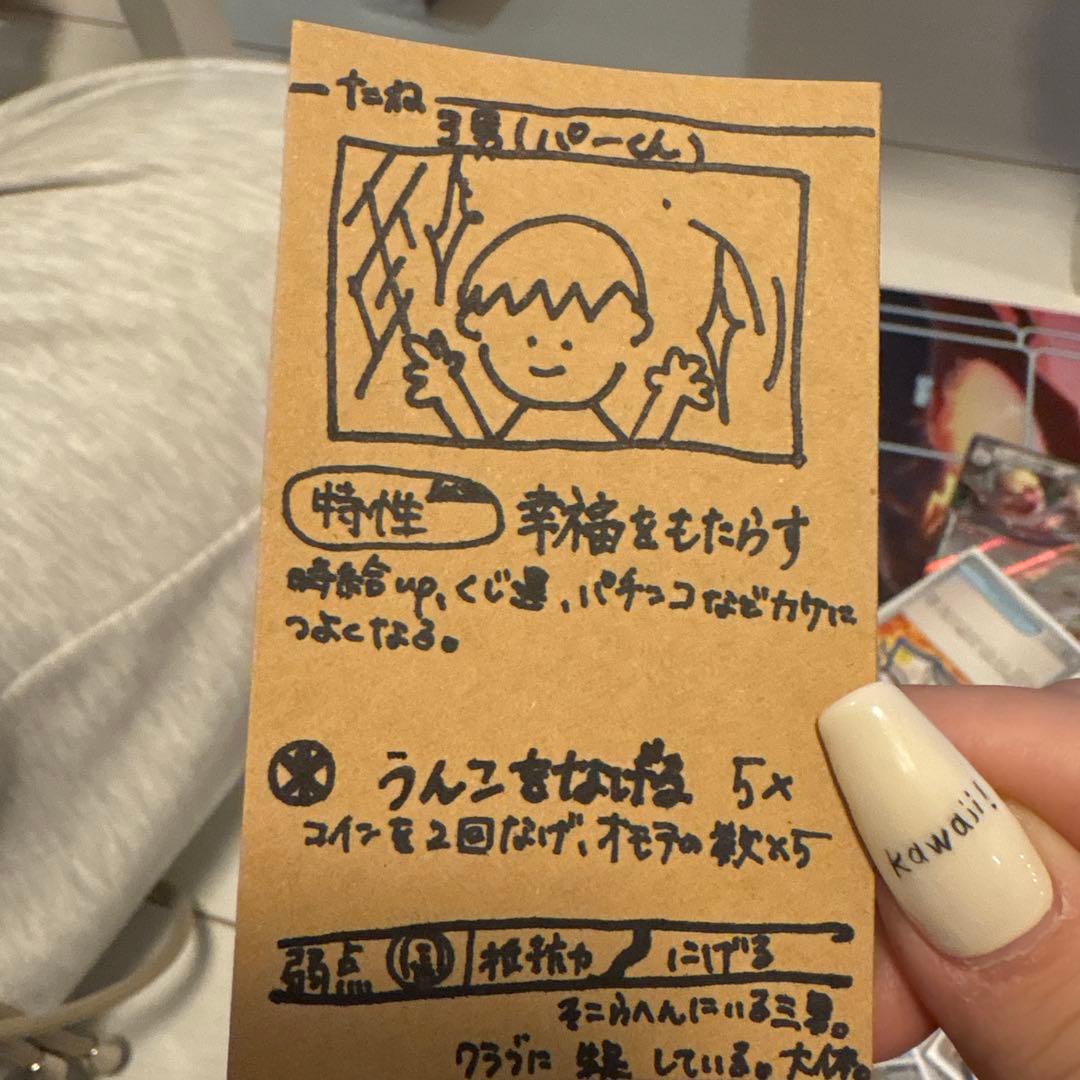 たね
3男(パーくん)
特性 幸福をもたらす
時給up、くじ運、パチンコなどカケに
つよくなる。
うんこをなげる 5×
コインを2回なげ、オモテの数×5
弱点 抵抗力 にげる
そこらへんにいる三男。
クラブに 生息 している。大体。
kawaii!